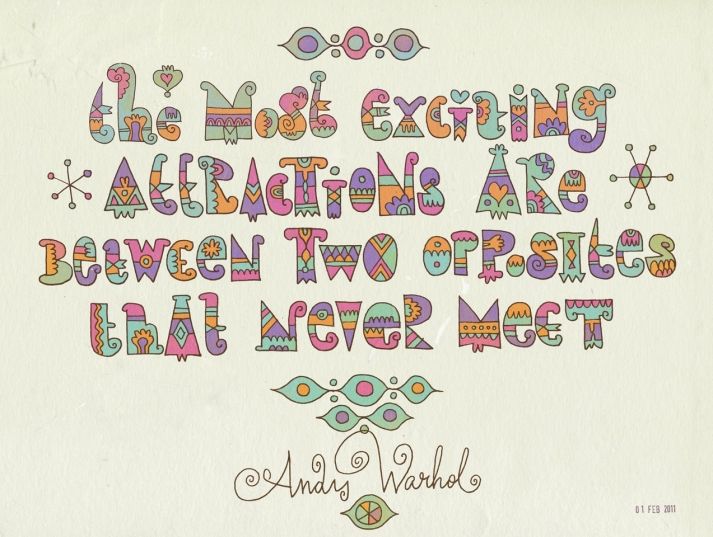 the Most Exciting
Attractions Are
Between Two opposites
that Never Meet
Andy Warhol
01 FEB 2011